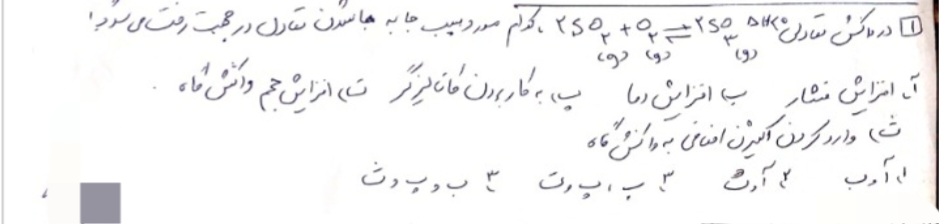 ۱ در واکنش تعادلی 2SO₂(g) + O₂(g) ⇌ 2SO₃(g) ΔH<0، کدام مورد سبب جا به جا شدن تعادل در جهت رفت می شود؟
آ. افزایش فشار ب) افزایش دما پ) به کار بردن کاتالیزگر ت) افزایش حجم واکنش گاه .
ث) وارد کردن اکسیژن اضافی به واکنش گاه
۱. آ و ب ۲. آ و ث ۳. ب ، پ و ت ۴. ب و پ و ث